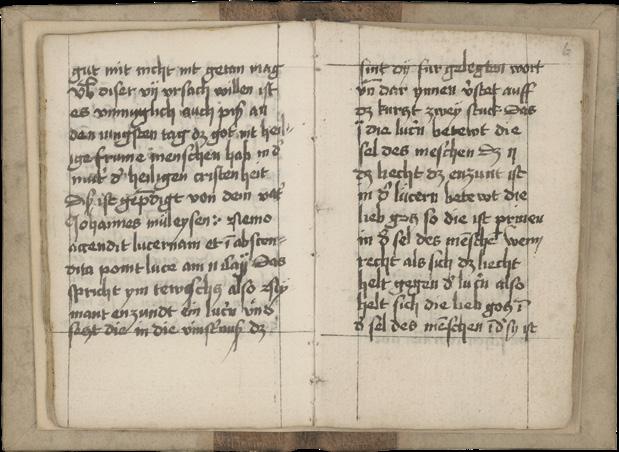 gut mit nicht nit getan mag
Vm̄b diser vij vrsach willen ist
es vnmuglich auch piß an
den iungsten tag dz got nit heil-
ige frume menschen hab in d'
mut' d' heiligen cristenheit
Diß ist gep̄digt von dem vat'
Johannes müleysen :~ Nemo
accendit lucernam et ī abscon-
dita ponit luce am xj Das
spricht ym tewtschē also
mant enzundt ein luc'n vn̄d
seczt die in die vinst'nuß dz
6
sint dÿ fur gelegten wort
vn̄ dar ynnen v'stet auff
dz kurczt zwey stuck Das
j die luc'n betewt die
sel des mēschen Dz ij
dz liecht dz enzunt ist
in d' lucern betewt die
lieb gocz so die ist prinnen
in d' sel des mēschē Wenn
recht als sich dz liecht
helt gegen d' luc'n also
helt sich die lieb gocz ī
d' sel des mēschen ī d' sy ist